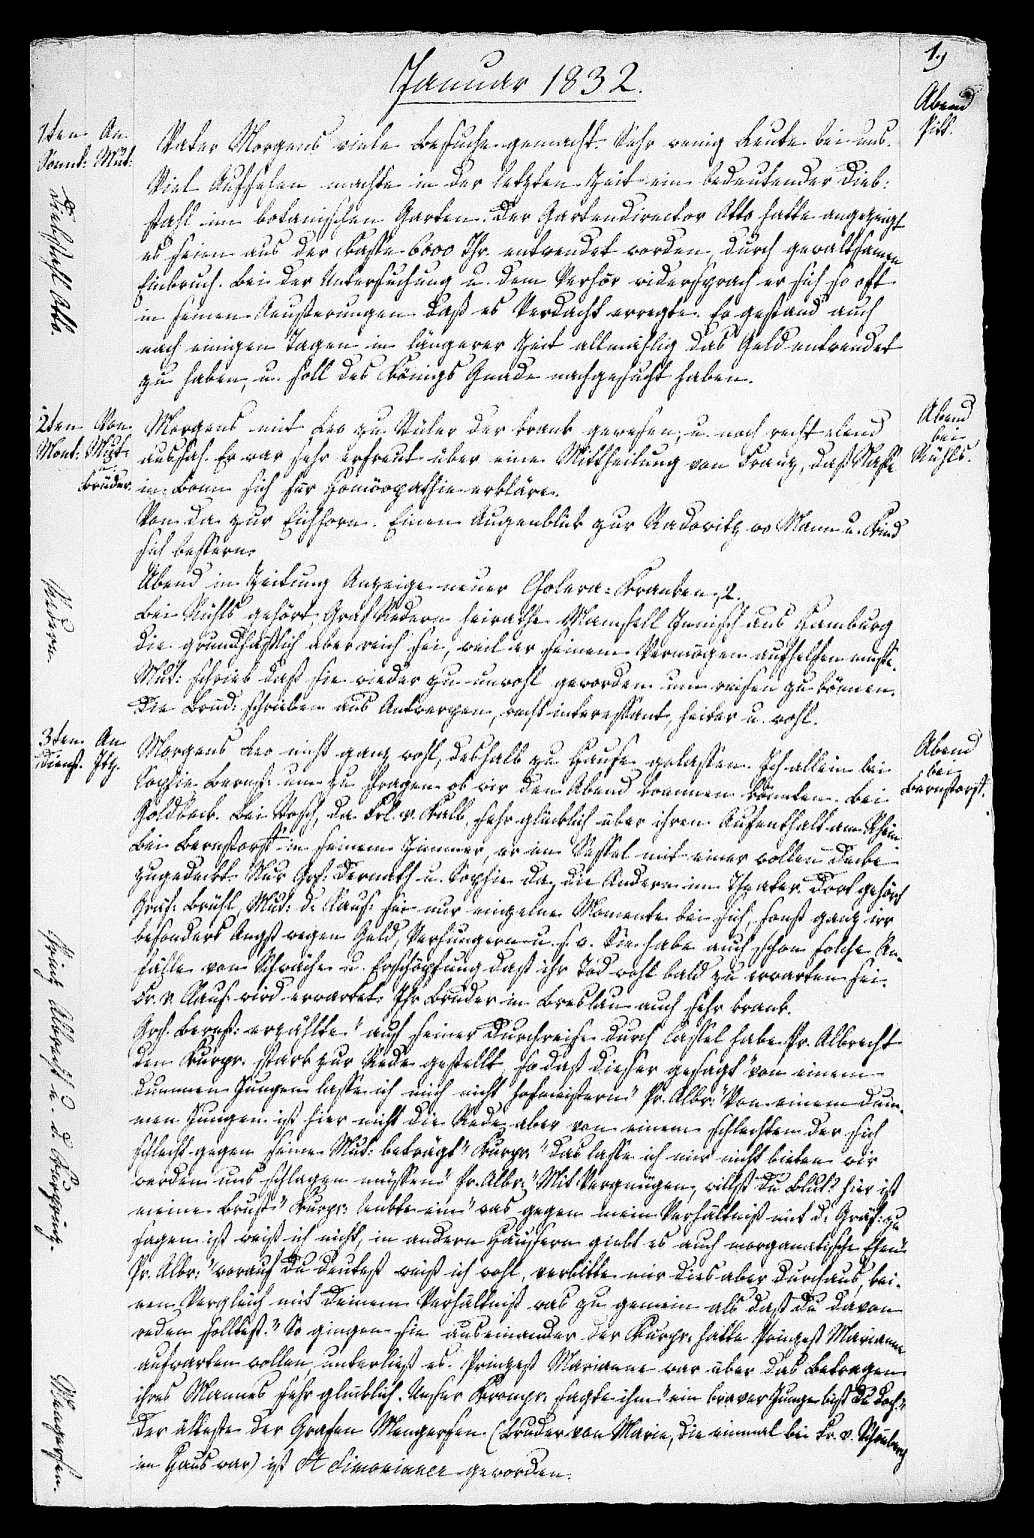 1.)
Januar 1832.
1ten An
Sonnt: Mut:
Abend
Pitt.
Vater Morgens viele Besuche gemacht. Sehr wenig Leute bei uns.
Viel Aufsehen machte in der letzten Zeit ein bedeutender Dieb:
stahl im botanischen Garten. Der Gartendirector Otto hatte angezeigt
es seien aus der Kasse 6000 Thr. entwendet worden, durch gewaltsamen
Einbruch. Bei der Untersuchung u. dem Verhör widersprach er sich so oft
in seinen Aeußerungen daß es Verdacht erregte. Er gestand auch
nach einigen Tagen in längerer Zeit allmählig das Geld entwendet
zu haben, u. soll des Königs Gnade nachgesucht haben.
Diebstahl Otto.
2ten Von
Mont: Mut:
u.
Brüder.
Abend
bei
Rühls.
Morgens mit Leo zu Stüler der krank gewesen, u. noch recht elend
aussah. Er war sehr erfreut über eine Mittheilung von Franz, daß Nasse
in Bonn sich für Homöopathie erkläre.
Von da zur Eichhorn. Einen Augenblick zur Radowitz wo Mann u. Kind
sich bessern.
Abend in Zeitung Anzeige neuer Cholera-Kranken, 2.
Bei Rühls gehört, Graf Redern heirathe Mamsell Jenisch aus Hamburg
die grundhäßlich aber reich sei, weil er seinem Vermögen aufhelfen müsse.
Mut: schrieb daß sie wieder zu unwohl geworden um reisen zu können.
Die Brüd: schrieben aus Antwerpen, recht interessant, heiter u. wohl.
Redern.
3ten An
Dienst. Itz.
Abend
bei
Bernstorff.
Morgens Leo nicht ganz wohl, deshalb zu Hause gelassen. Ich allein bei
Sophie Bernst: um zu fragen ob wir den Abend kommen könnten. Bei
Goldbeck. Bei Rosch, da Frl. v. Kalb, sehr glücklich über ihren Aufenthalt am Rhein
Bei Bernstorff in seinem Zimmer, er im Sessel mit einer wollen Decke
zugedeckt. Nur Grf: Dernath u. Sophie da, die Andern im Theater. Dort gehört
Gräf: Brühl, Mut: d. Clauß: sei nur einzelne Momente bei sich, sonst ganz irr
besonders Angst wegen Geld, Verhungern u. s. w. Sie habe auch schon solche An-
fälle von Schwäche u. Erschöpfung daß ihr Tod wohl bald zu erwarten sei.
Fr. v. Clauß: wird erwartet. Ihr Bruder in Breslau auch sehr krank.
Grf. Bernst: erzählte "auf seiner Durchreise durch Cassel habe Pr. Albrecht
den Kurpr. stark zur Rede gestellt, so daß dieser gesagt "von einem
dummen Jungen lasse ich mich nicht hofmeistern." Pr. Albr: "Von einem dum-
men Jungen ist hier nicht die Rede, aber von einem schlechten der sich
schlecht gegen seine Mut: beträgt." Kurpr. "Das lasse ich mir nicht bieten wir
werden uns schlagen müssen." Pr. Albr: "Mit Vergnügen, willst du Blut? hier ist
meine Brust." Kurpr: lenkte ein "was gegen mein Verhältniß mit d. Gräf: zu
sagen ist weiß ich nicht, in andern Häusern giebt es auch morganatische Ehen."
Pr. Albr: "worauf du deutest weiß ich wohl, verbitte mir dies aber durchaus, kei-
nen Vergleich mit deinem Verhältniß was zu gemein als daß du davon
reden solltest." So gingen sie auseinander. Der Kurpr: hatte Prinzeß Marianne
aufwarten wollen, unterließ es. Prinzeß Marianne war über das Betragen
ihres Mannes sehr glücklich. Unser Kronpr. sagte ihm "ein braver Junge bist du doch."
Der älteste der Grafen Mengersen (Bruder von Marie, die einmal bei Fr. v. Schönberg
im Haus war) ist St Simonianer geworden.
Prinz Albrecht u. d. Kurprinz.
Mengersen.